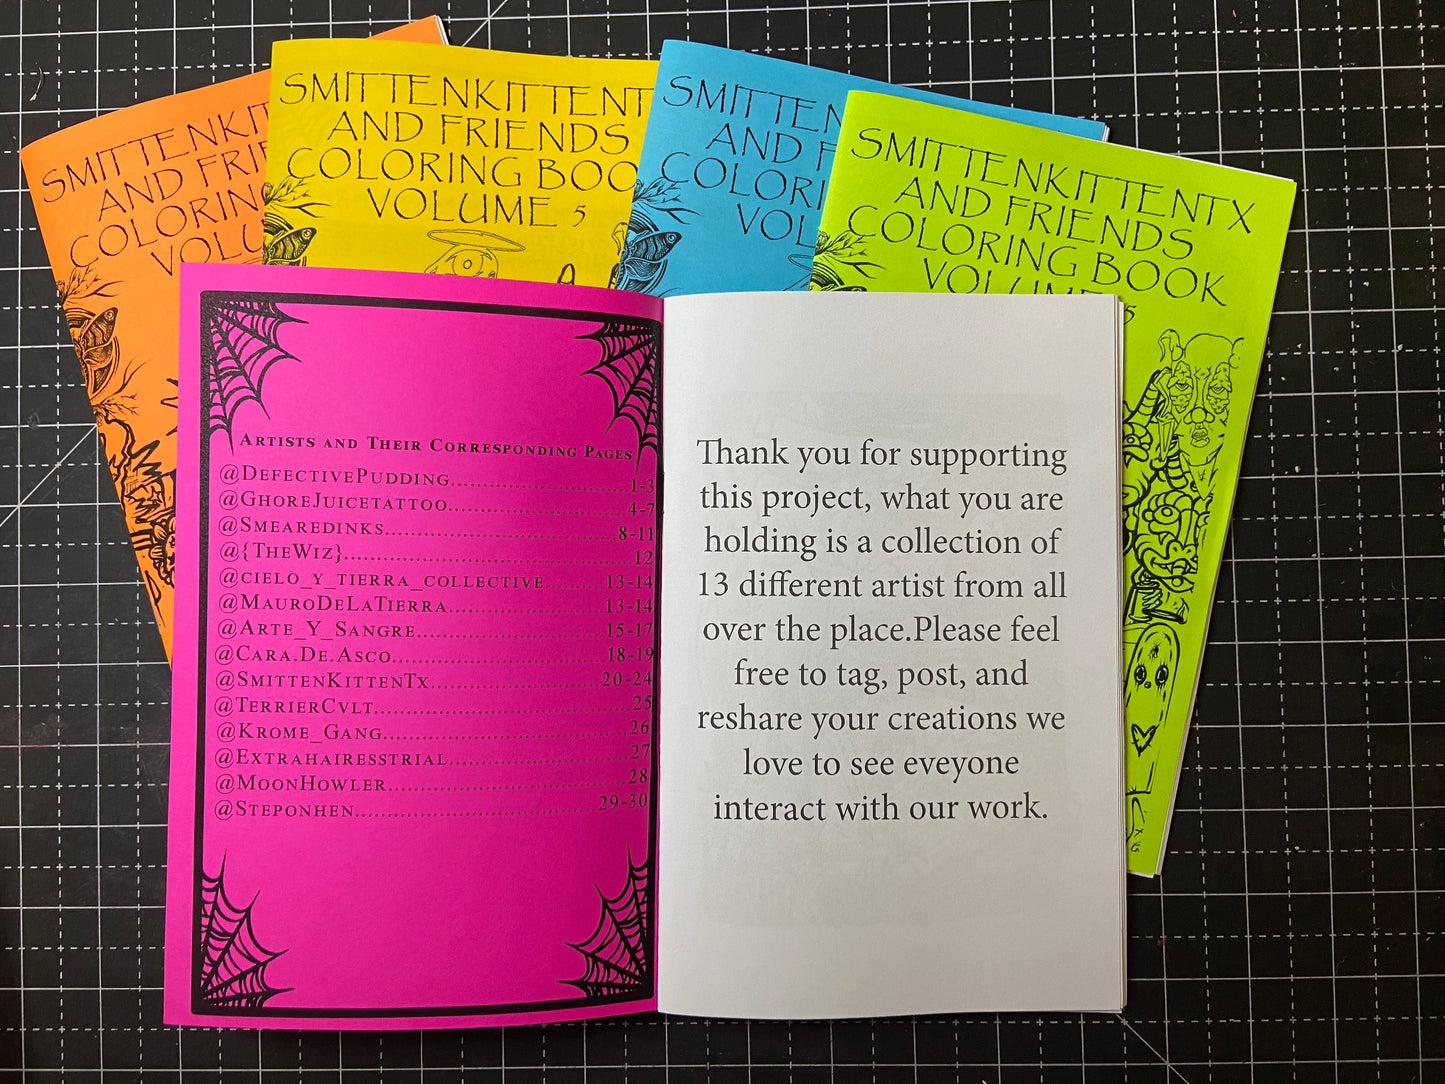 SMITTENKIT
AND FRIE
COLORIN
VOLU
SMITTENKITTENT
AND FRIENDS
COLORING BOO
VOLUME 5
SMITTEN
AND F
COLORI
VOL
SMITTENKITTENTX
AND FRIENDS
COLORING BOOK
VOLUME 5
Artists and Their Corresponding Pages
@DefectivePudding..............................1-3
@GhoreJuicetattoo..............................4-7
@Smearedinks.......................................8-11
@{TheWiz}................................................12
@cielo_y_tierra_collective..........13-14
@MauroDeLaTierra..........................13-14
@Arte_Y_Sangre................................15-17
@Cara.De.Asco....................................18-19
@SmittenKittenTx............................20-24
@TerrierCvlt...........................................25
@Krome_Gang.........................................26
@Extrahairesstrial.............................27
@MoonHowler........................................28
@Steponhen........................................29-30
Thank you for supporting
this project, what you are
holding is a collection of
13 different artist from all
over the place.Please feel
free to tag, post, and
reshare your creations we
love to see eveyone
interact with our work.